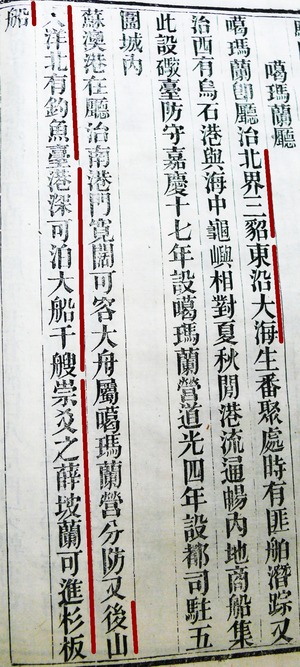 噶瑪蘭廳
噶瑪蘭卽廳治北界三貂東沿大海生番聚處時有匪舶潛踪又
治西有烏石港與海中龜嶼相對夏秋開港流通暢內地商船集
此設礮臺防守嘉慶十七年設噶瑪蘭營道光四年設都司駐五
圍城內
蘇澳港在廳治南港門寬闊可容大舟屬噶瑪蘭營分防又後山
大洋北有鈞魚臺港深可泊大船千艘崇爻之薛坡蘭可進杉板
船